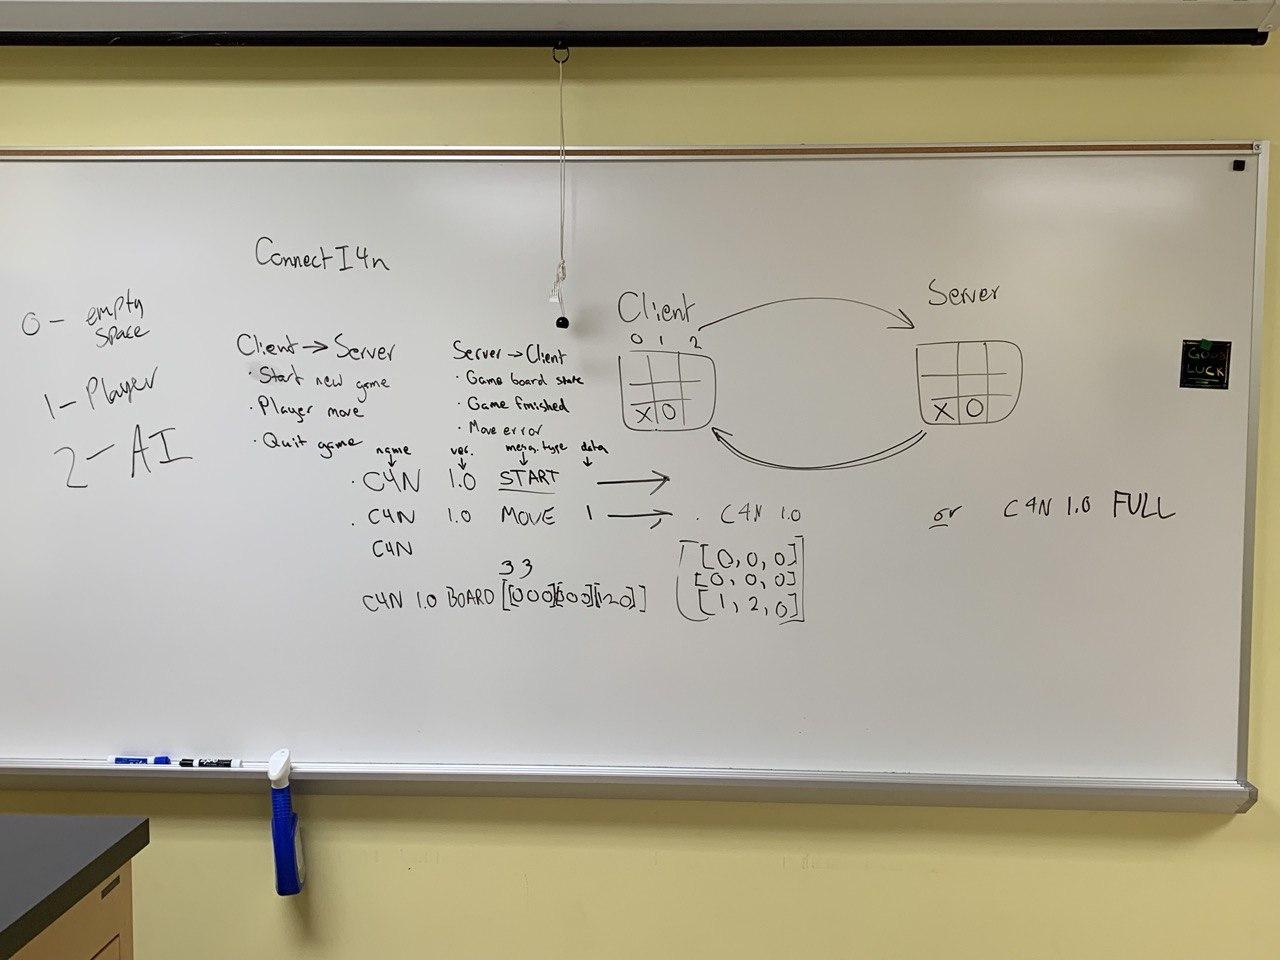 Connect I4n
0 - empty
space
1 - Player
2 - AI
Client → Server
· Start new game
· Player move
· Quit game
Server → Client
· Game board state
· Game finished
· Move error
name ver. mesg. type data
· C4N 1.0 START →
· C4N 1.0 MOVE 1 →
C4N
3 3
C4N 1.0 BOARD [[000][000][120]]
Client
0 1 2
X O
Server
X O
· C4N 1.0
[0, 0, 0]
[0, 0, 0]
[1, 2, 0]
or C4N 1.0 FULL
GOOD
LUCK